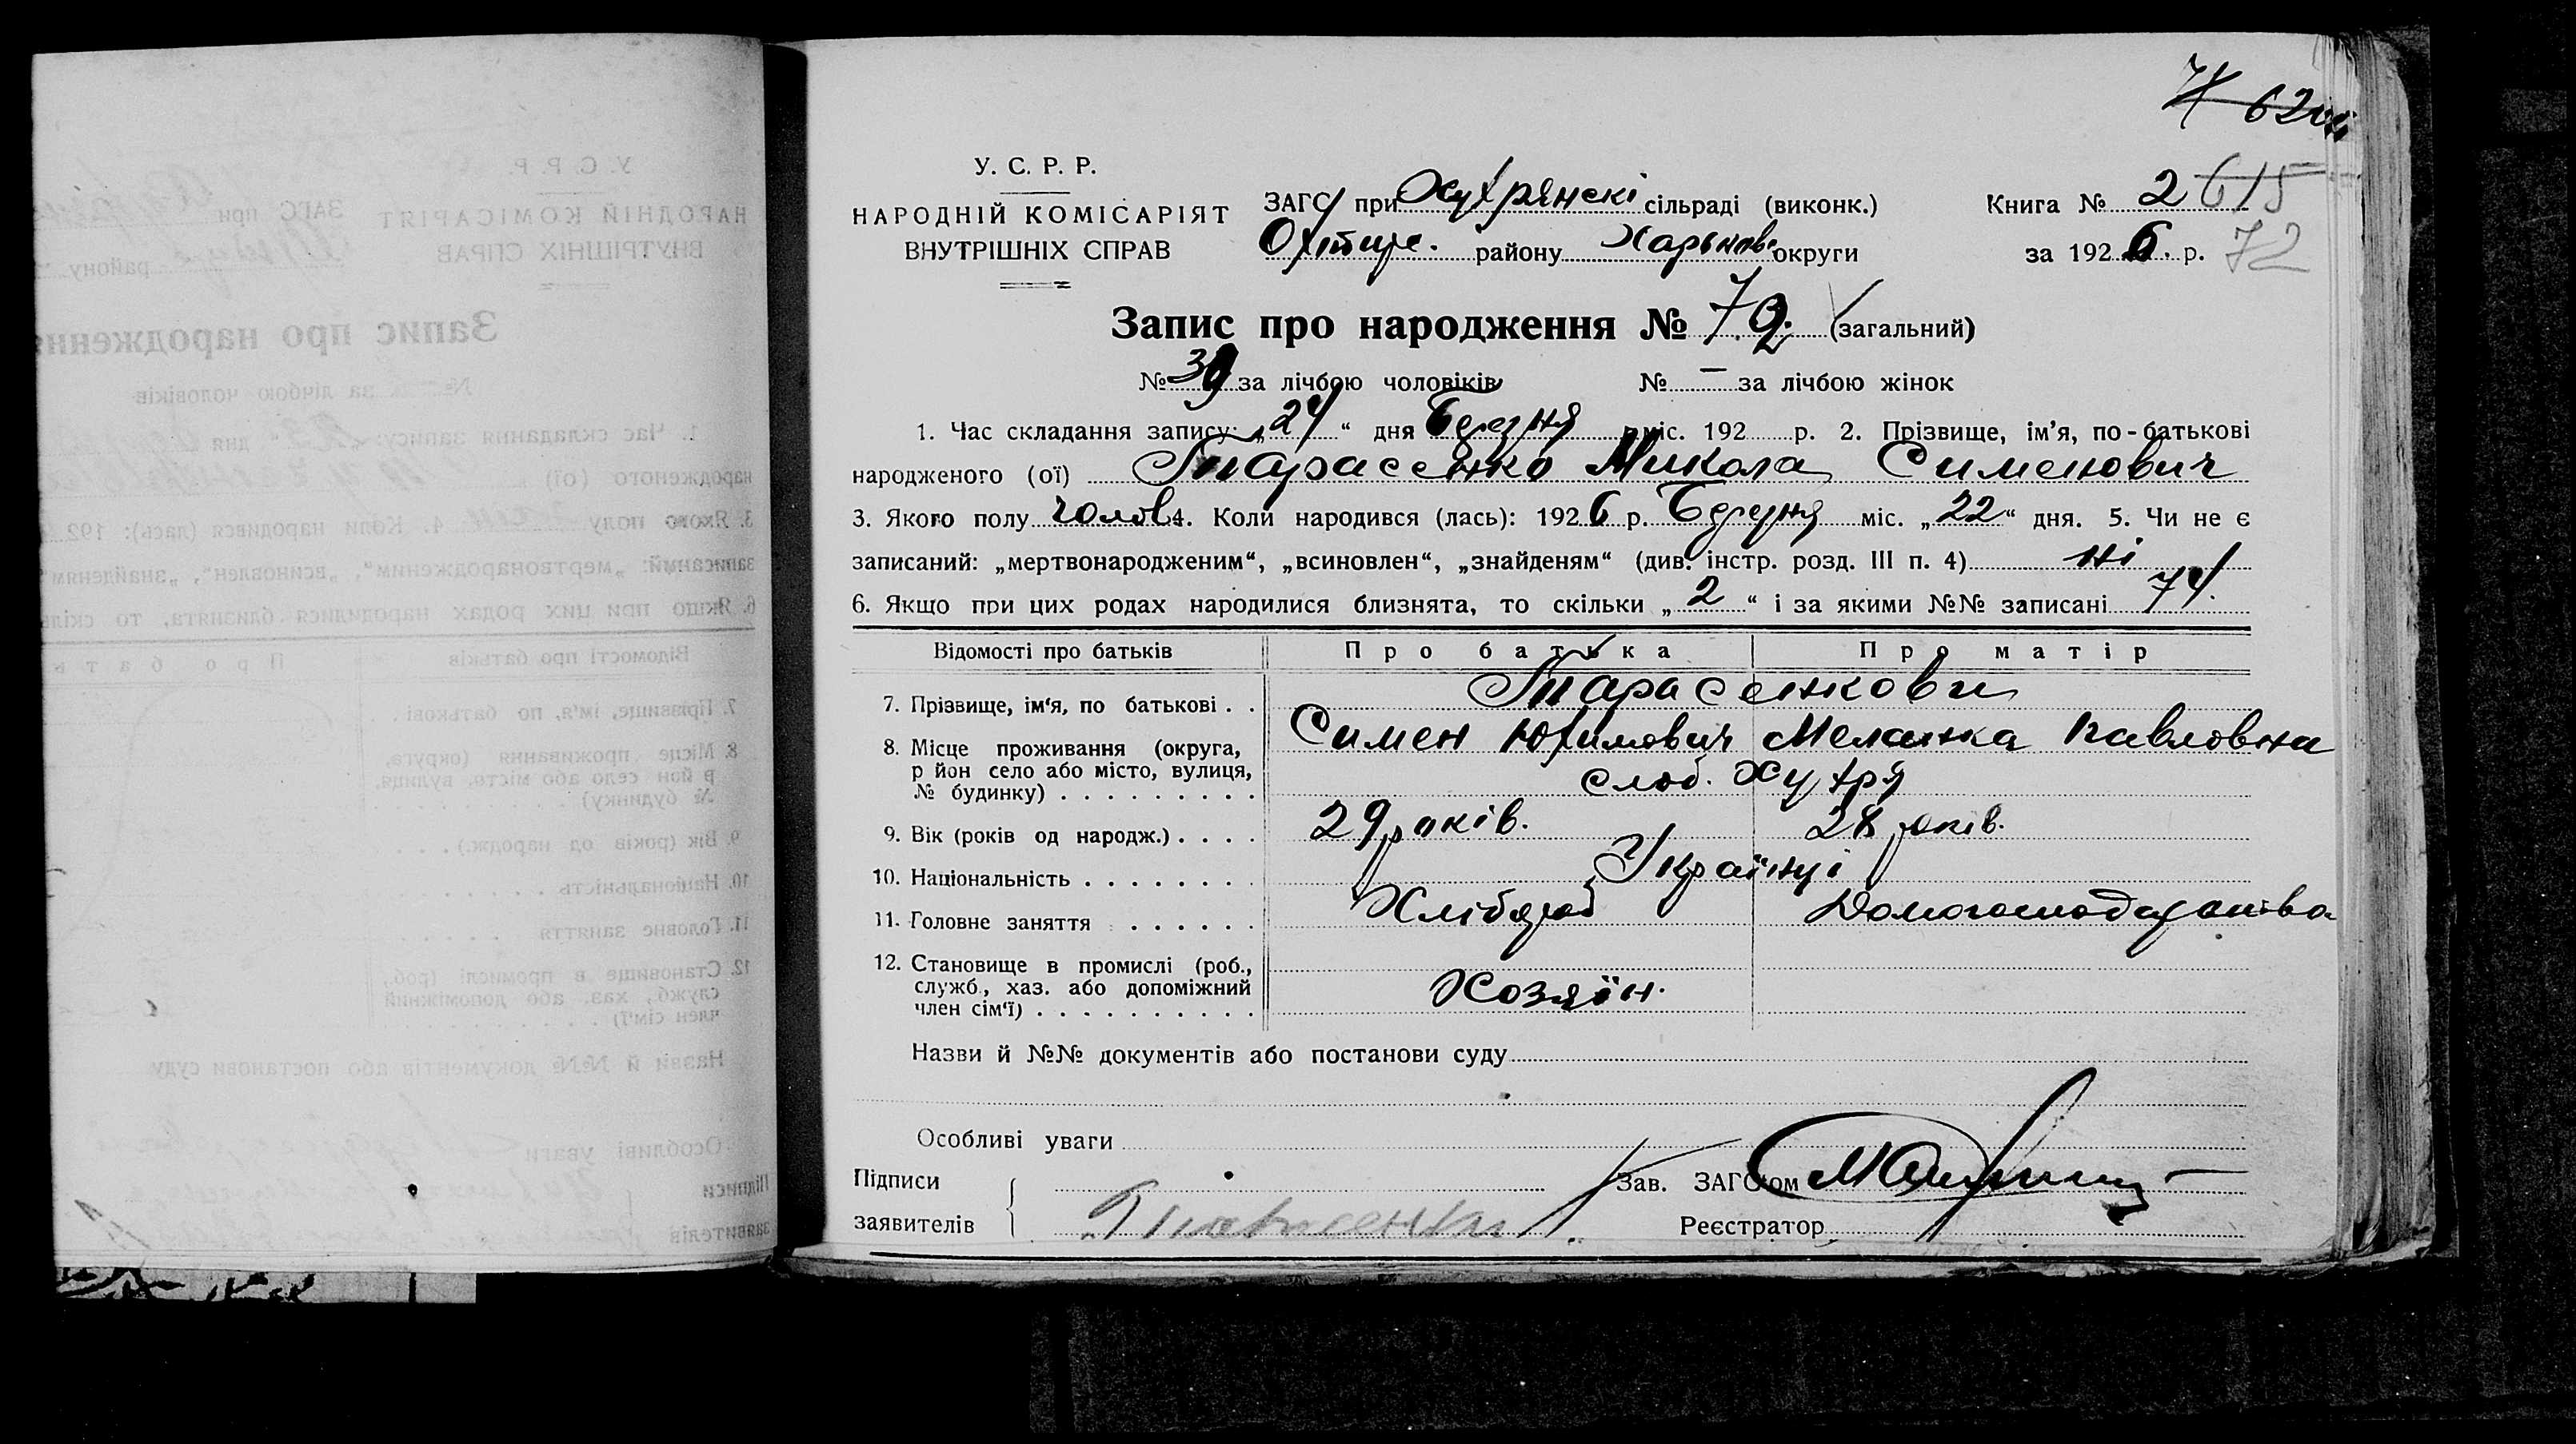 У. С. Р. Р.
НАРОДНІЙ КОМІСАРІЯТ
ВНУТРІШНІХ СПРАВ
ЗАГС при Хухрянскі сільраді (виконк.)
Охтир. району Харьков округи
Книга № 2 615
за 192 6. р. 72
Запис про народження № 72. (загальний)
№ 39 за лічбою чоловіків № — за лічбою жінок
1. Час складання запису: „24“ дня Березня міс. 192 р. 2. Прізвище, ім’я, по-батькові
народженого (ої) Тарасенко Микола Сименович
3. Якого полу чолов 4. Коли народився (лась): 192 6 р. Березня міс. „22“ дня. 5. Чи не є
записаний: „мертвонародженим“, „всиновлен“, „знайденям“ (див. інстр. розд. III п. 4) ні
6. Якщо при цих родах народилися близнята, то скільки „2“ і за якими №№ записані 74.
Відомості про батьків Про батька Про матір
7. Прізвище, ім‘я, по батькові . . Тарасенкови
Симен Юхимович Меланка Павловна
8. Місце проживання (округа,
р йон село або місто, вулиця,
№ будинку) . . . . . . . . . слоб. Хухря
9. Вік (років од народж.) . . . . 29 років. 28 років.
10. Національність . . . . . . . Українці
11. Головне заняття . . . . . . Хлібороб Домогосподарства
12. Становище в промислі (роб.,
служб., хаз. або допоміжний
член сім‘ї) . . . . . . . . . . Хозяїн.
Назви й №№ документів або постанови суду
Особливі уваги
Підписи
заявителів
Зав. ЗАГС‘ом
Реєстратор